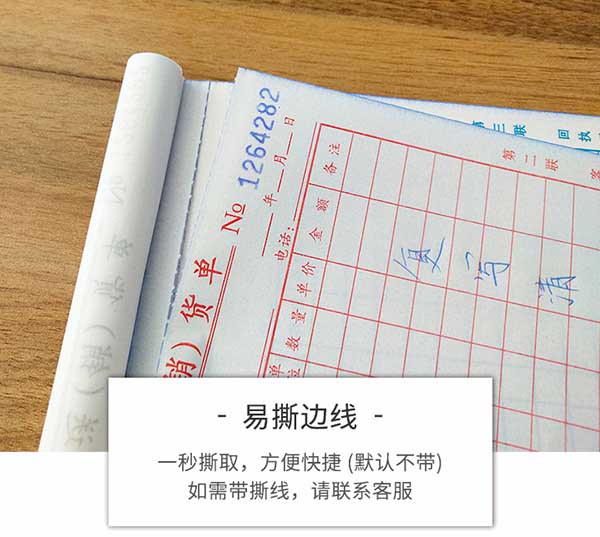 销）货单
№ 1264282
年 月 日
电话：
单位 数量 单价 金额 备注
第二联
客
第三联
回执
复写清
- 易撕边线 -
一秒撕取，方便快捷 (默认不带)
如需带撕线，请联系客服